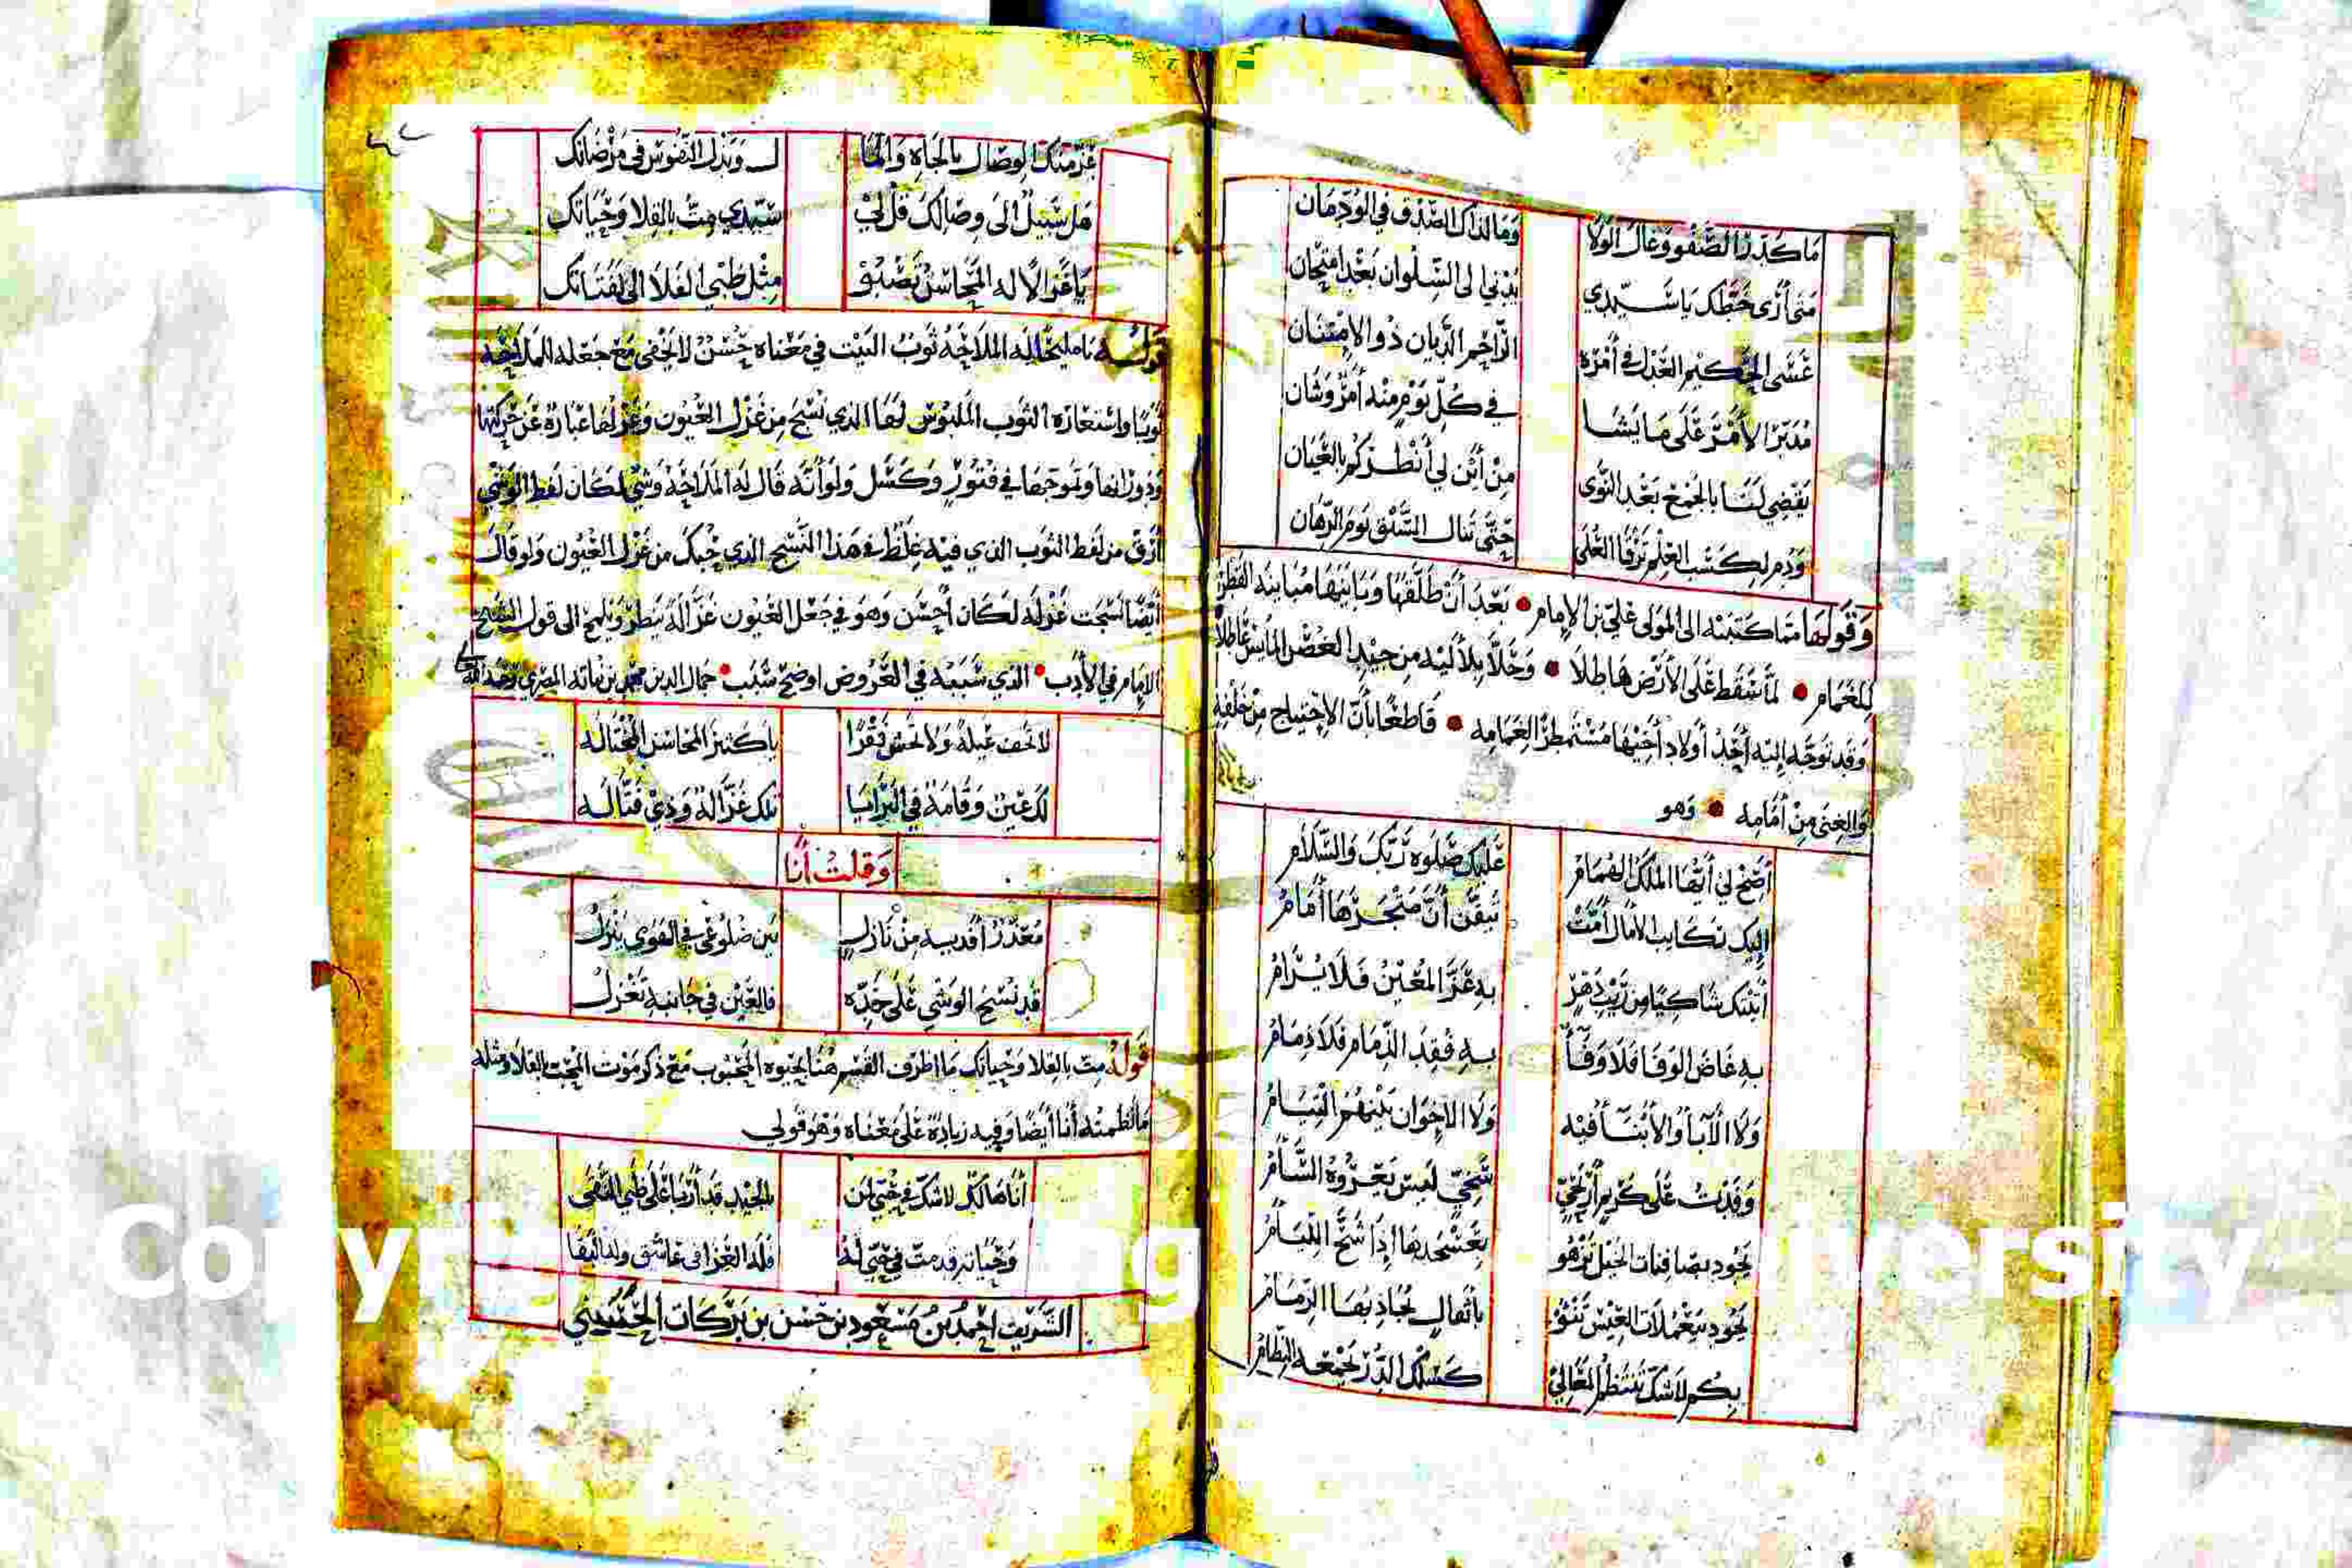 مَا كَدَّرَ الصَّفْو وَغَالَ الوَلَا وَمَا لِذَاكَ الصِّدْق فِي الوُدِّ مَان
مَتَى أَرَى خَطَّك يَا سَيِّدِي يُدْنِي إلى السِّلْوان بَعْدَ امْتِحَان
عَسَى الحَكِيْم العَدْل فِي أَمْرِهِ الرَّاحِم الدَّيَان ذُو الامْتِنَان
مُدَبِّرُ الأَمْرِ عَلَى مَا يَشَا فِي كُلِّ يَوْمٍ مِنْه أَمْرٌ وَشَان
يَقْضِي لَنَا بِالجَمْع بَعْد النَّوَى مِنْ أَيْن لِي أَنْظُركُم بِالعِيَان
وَدُم لِكَسْب العِلْم تَرْقَا العُلَى حَتَّى تَنَال السَّبْق يَوم الرِّهَان
وَقَوْلهَا مِمَّا كَتَبَتْه الى المَوْلى عَلِيّ بن الإمام بَعْد أَنْ طَلَّقَهَا وَبَايَنَهَا مُبَاينَة القَطْر
لِلغَمَام لَمَّا سَقَط عَلَى الأَرْض هَاطِلاً وَخَلَّا بِلاَ لَيْه مِن جِيْد الغُصْن المَايِس عَاطِلاً
وَقَد تَوَجَّه إليْه أَحَدُ أَوْلاد أَخِيْهَا مُسْتَمْطِرًا لِغَمَامِه قَاطِعًا بِأَنَّ الاحْتِيَاج مِنْ خَلْفِه
وَالغِنَى مِنْ أَمَامِه وَهو
أَصِخْ لِي أَيُّهَا المَلِكُ الهُمَامُ عَلَيْك صَلَوة رَبِّكَ وَالسَّلَامُ
إِلَيْك رَكَايب الآمَال أَمَّتْ تَيَقَّن أَنَّ مَتْجَرهَا أَمَامُ
أَتَيْتك شَاكِيًا مِن رَيْب دَهْرٍ بِهِ عَزَّ المُعِيْنُ فَلَا يُرَامُ
بِهِ غَاضَ الوَفَا فَلَا وَفَاءٌ بِهِ فُقِدَ الذِّمَام فَلَا ذِمَامُ
وَلَا الآبَاُ وَالأَبْنَاُ فِيْه وَلَا الاخْوَان بَيْنهُمُ التِيَامُ
وَفَدْتُ عَلَى كَرِيْمٍ أَرْيَحِيٍّ سَخِيٍّ لَيْس يَعْرُوهُ السَّأَمُ
يَجُود بِصَافِنَات الخَيْل تَزْهُو بِعَسْجَدهَا إِذَا شَحَّ اللِّيَامُ
يَجُود بِيَعْمَلَات العِيْس بِأَثْقَالٍ تُجَاذِبُهَا الزِّمَامُ
بِكُم لَا شَكّ تَنْتَظِمُ المَعَالِي كَسِلْك الدُّرّ يَجْمَعه النِّظَامُ
عَزَّ مِنْكَ الوِصَال بِالجَاهِ وَالمَا لِ وَبَذْل النُّفُوْس فِي مَرْضَاتِك
هَل سَبِيْلٌ الى وِصَالِكَ قُل لِي سَيِّدِي مِتُّ بِالقِلَا وَحَيَاتِك
يَا غَزَالًا لَه المَحَاسِنُ تَصْبُو مِثْل ظَبْي الفَلَا الى لَفَتَاتِك
قَوْلـه يَا مليحًا لَه المَلَاحَةُ ثَوْبُ البَيْت فِي مَعْنَاه حُسْنٌ لَا يَخْفَى مَعَ جَعْله المَلَاحَة
ثَوْبًا وَاسْتعَارَة الثَّوب المَلْبُوْس لهَا الَّذِي نُسِجَ مِن غَزْل العُيُون وَغَزْلهَا عِبَارَة عَن حَرَكَتِهَا
وَدَوَرَانهَا وَتَمَوّجهَا فِي فُتُوْرٍ وَكَسَل وَلَوْ أَنَّه قَال لَه المَلَاحَة وَشْيٌ لَكَان لَفْظ الوَشْي
أَرَقّ مِن لَفْظ الثَّوب الَّذِي فِيْه غِلَظٌ فِي هَذَا النَّسْج الَّذِي حِيْك مِن غَزْل العُيُون وَلَو قَالَ
أَيْضًا نَسَجَت غَزْله لَكَان أَحْسَن وَهو فِي جَعْل العُيُون غَزَّالَة يَنْظر وَيَلمح الى قول الشَّيْخ
الإمَام فِي الأَدَب الَّذِي سَبَبُهُ فِي العَرُوض أوضح سَبَب جَمَال الدين مُحَمَّد بن نُبَاته المِصْري رَحِمَهُ الله
لَا تَخَف عَيْلَةً وَلَا تَخْش فَقْرًا يَا كَثِيْر المَحَاسِن المُخْتَالَه
لَك عَيْنٌ وَقَامَةٌ فِي البَرَايَا تِلْك غَزَّالَةٌ وَذِيْ قَتَّالَه
وَقلت أَنَا
مُعَذَّرٌ أَفْدِيه مِنْ نَازِلٍ بَيْن ضُلُوعِي فِي الهَوَى يَنْزِلُ
قَد نُسِجَ الوَشْي عَلَى خَدِّه فَالعَيْن فِي جَانِبِه تَغْزِلُ
قَوْلهُ مِتّ بِالقِلَا وَحَيَاتِك مَا أَظْرَف القَسَم هُنَا بِحَيَوة المَحْبُوب مَعَ ذِكْر مَوْت المُحِبّ بِالقِلَا وَمِثْله
مَا نَظَمْتُه أَنَا أَيْضًا وَفِيْه زِيَادَة عَلَى مَعْنَاه وَهُو قَولي
أَنَا هَالِكٌ لَا شَكّ فِي حُبِّي لِمَن بِالجِيْد قَد أَرْبَا عَلَى ظَبْي النَّقَى
وَحَيَاتِه قَد مِتّ فِي حُبِّي لَهُ فَلَه العَزَا فِي عَاشِق وَلَه البَقَا
الشَّرِيْف احْمَدُ بنُ مَسْعُود بن حَسَن بن بَرَكَات الحَسَنِي